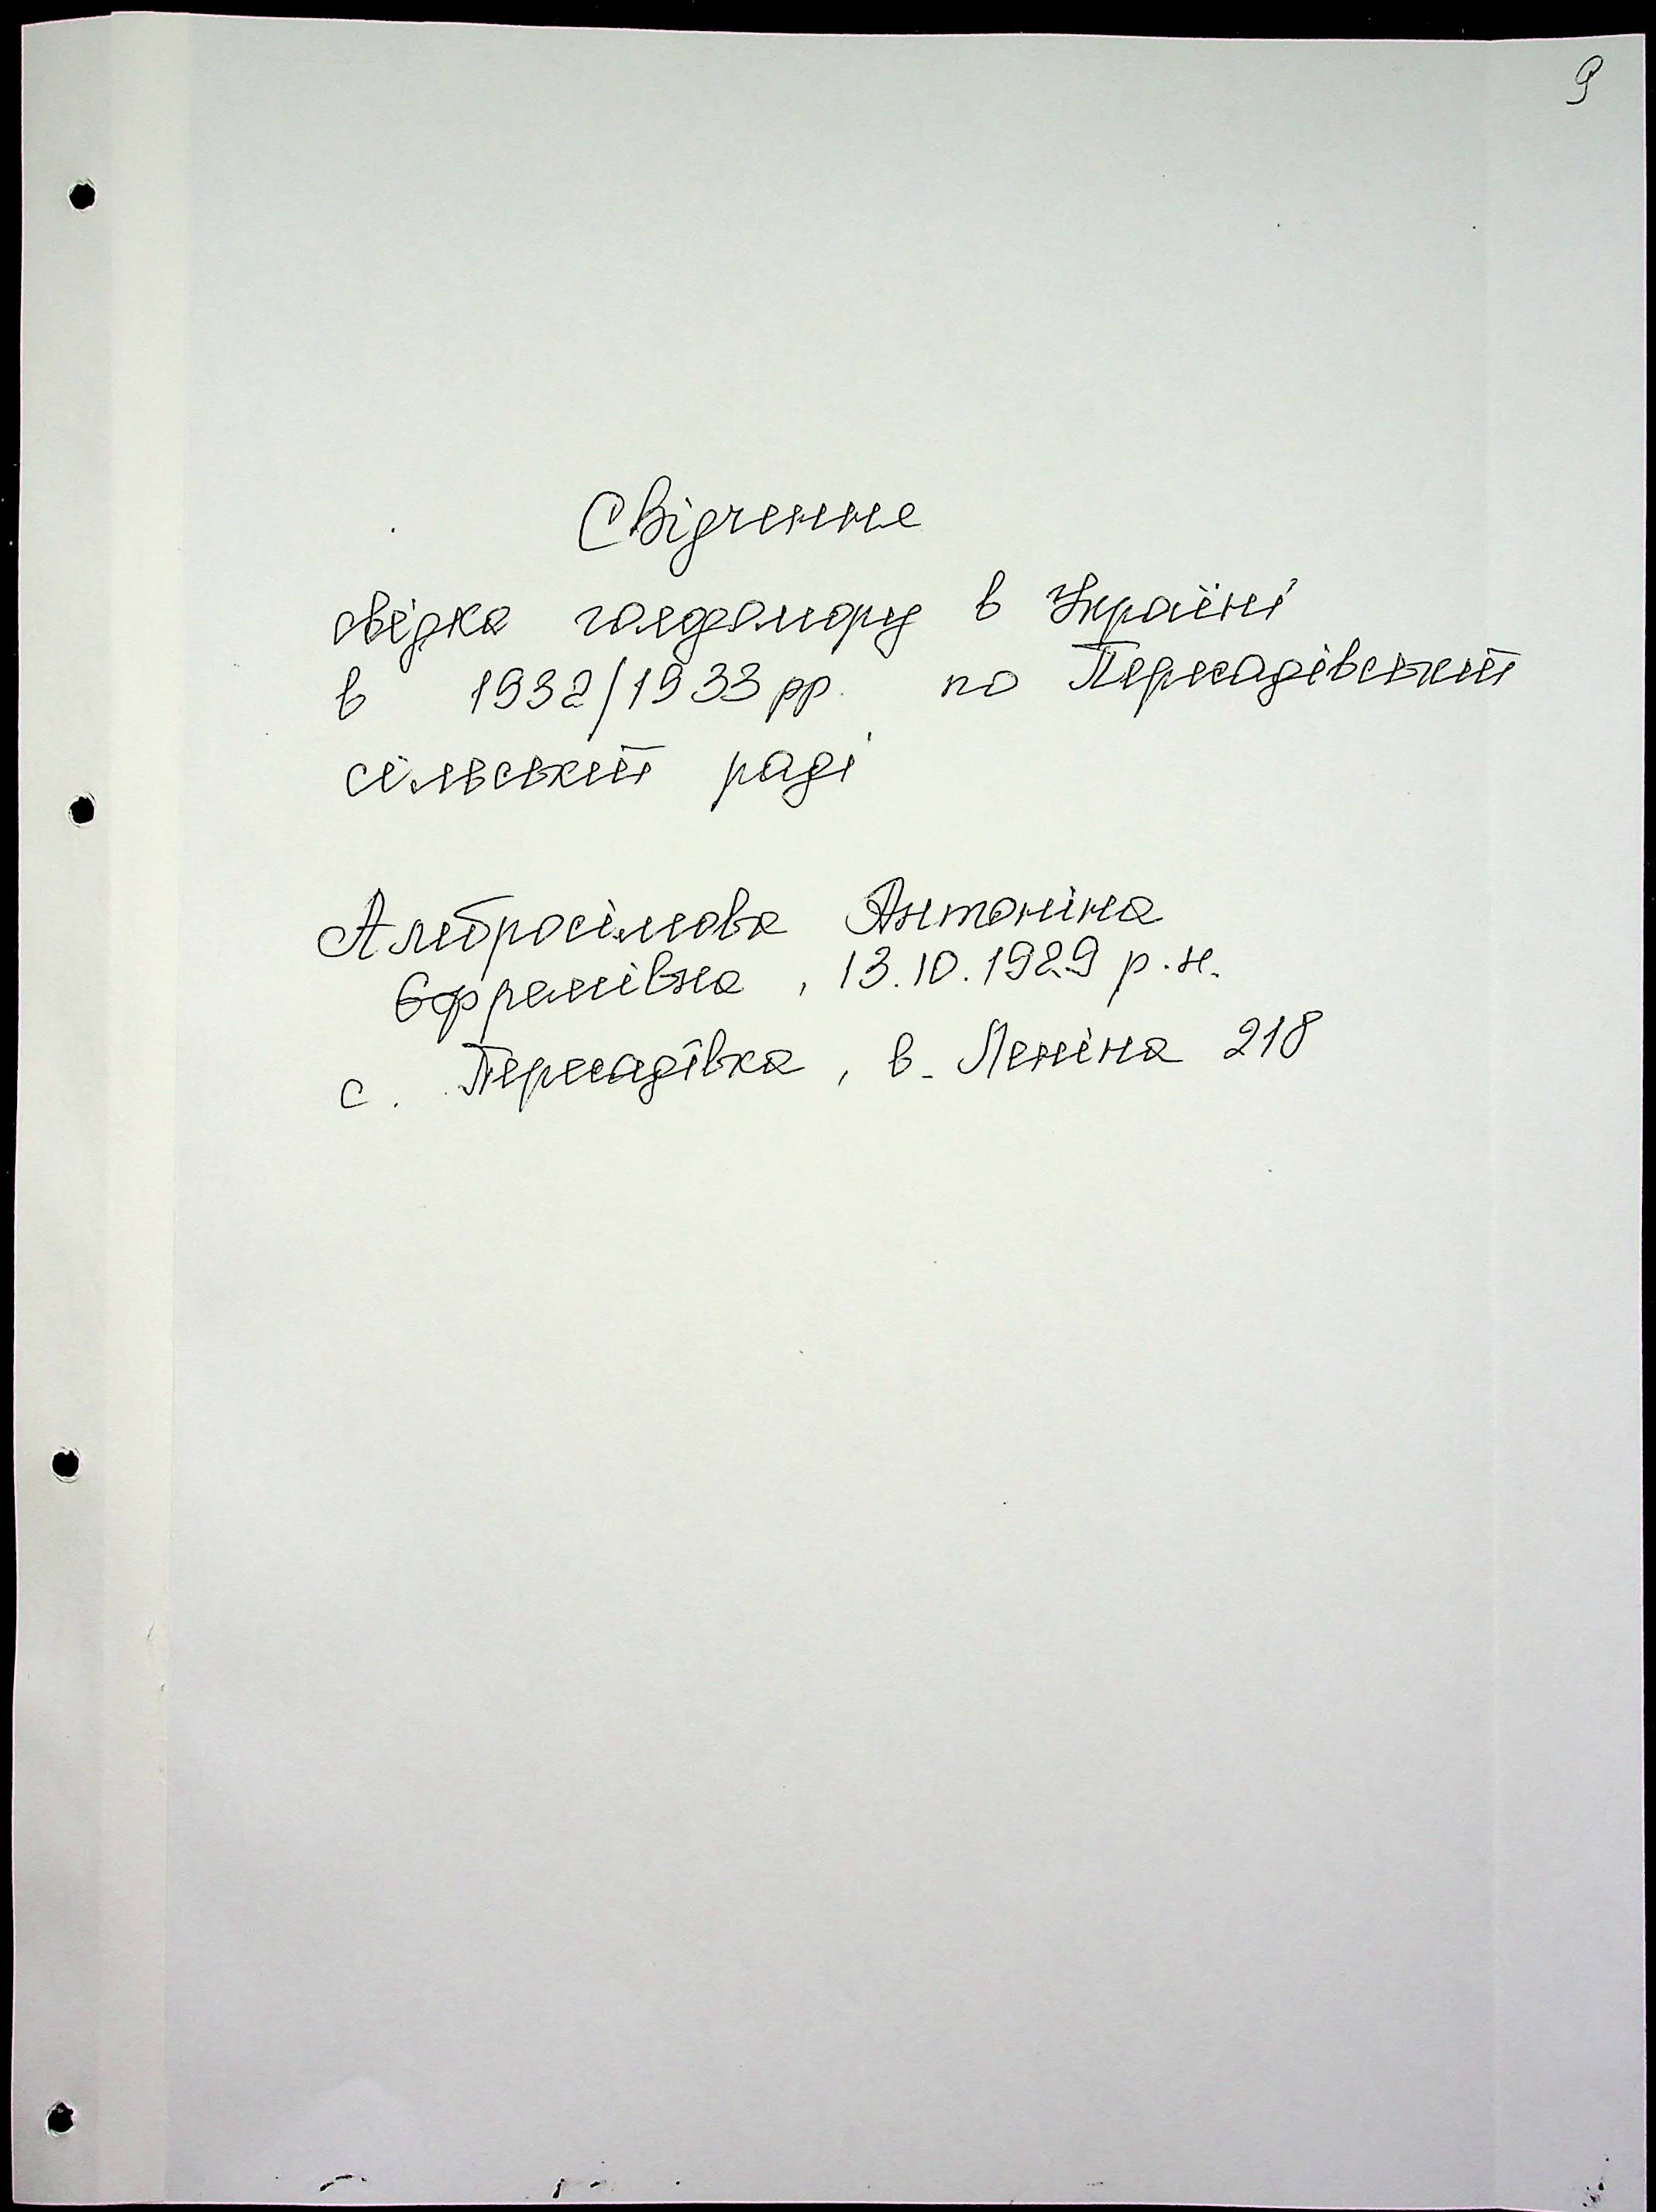 9
Свідчення
свідка голодомору в Україні
в 1932/1933 рр. по Пересадівській
сільській раді
Амбросімова Антоніна
Єфремівна, 13.10.1929 р.н.
с. Пересадівка, в. Леніна 218